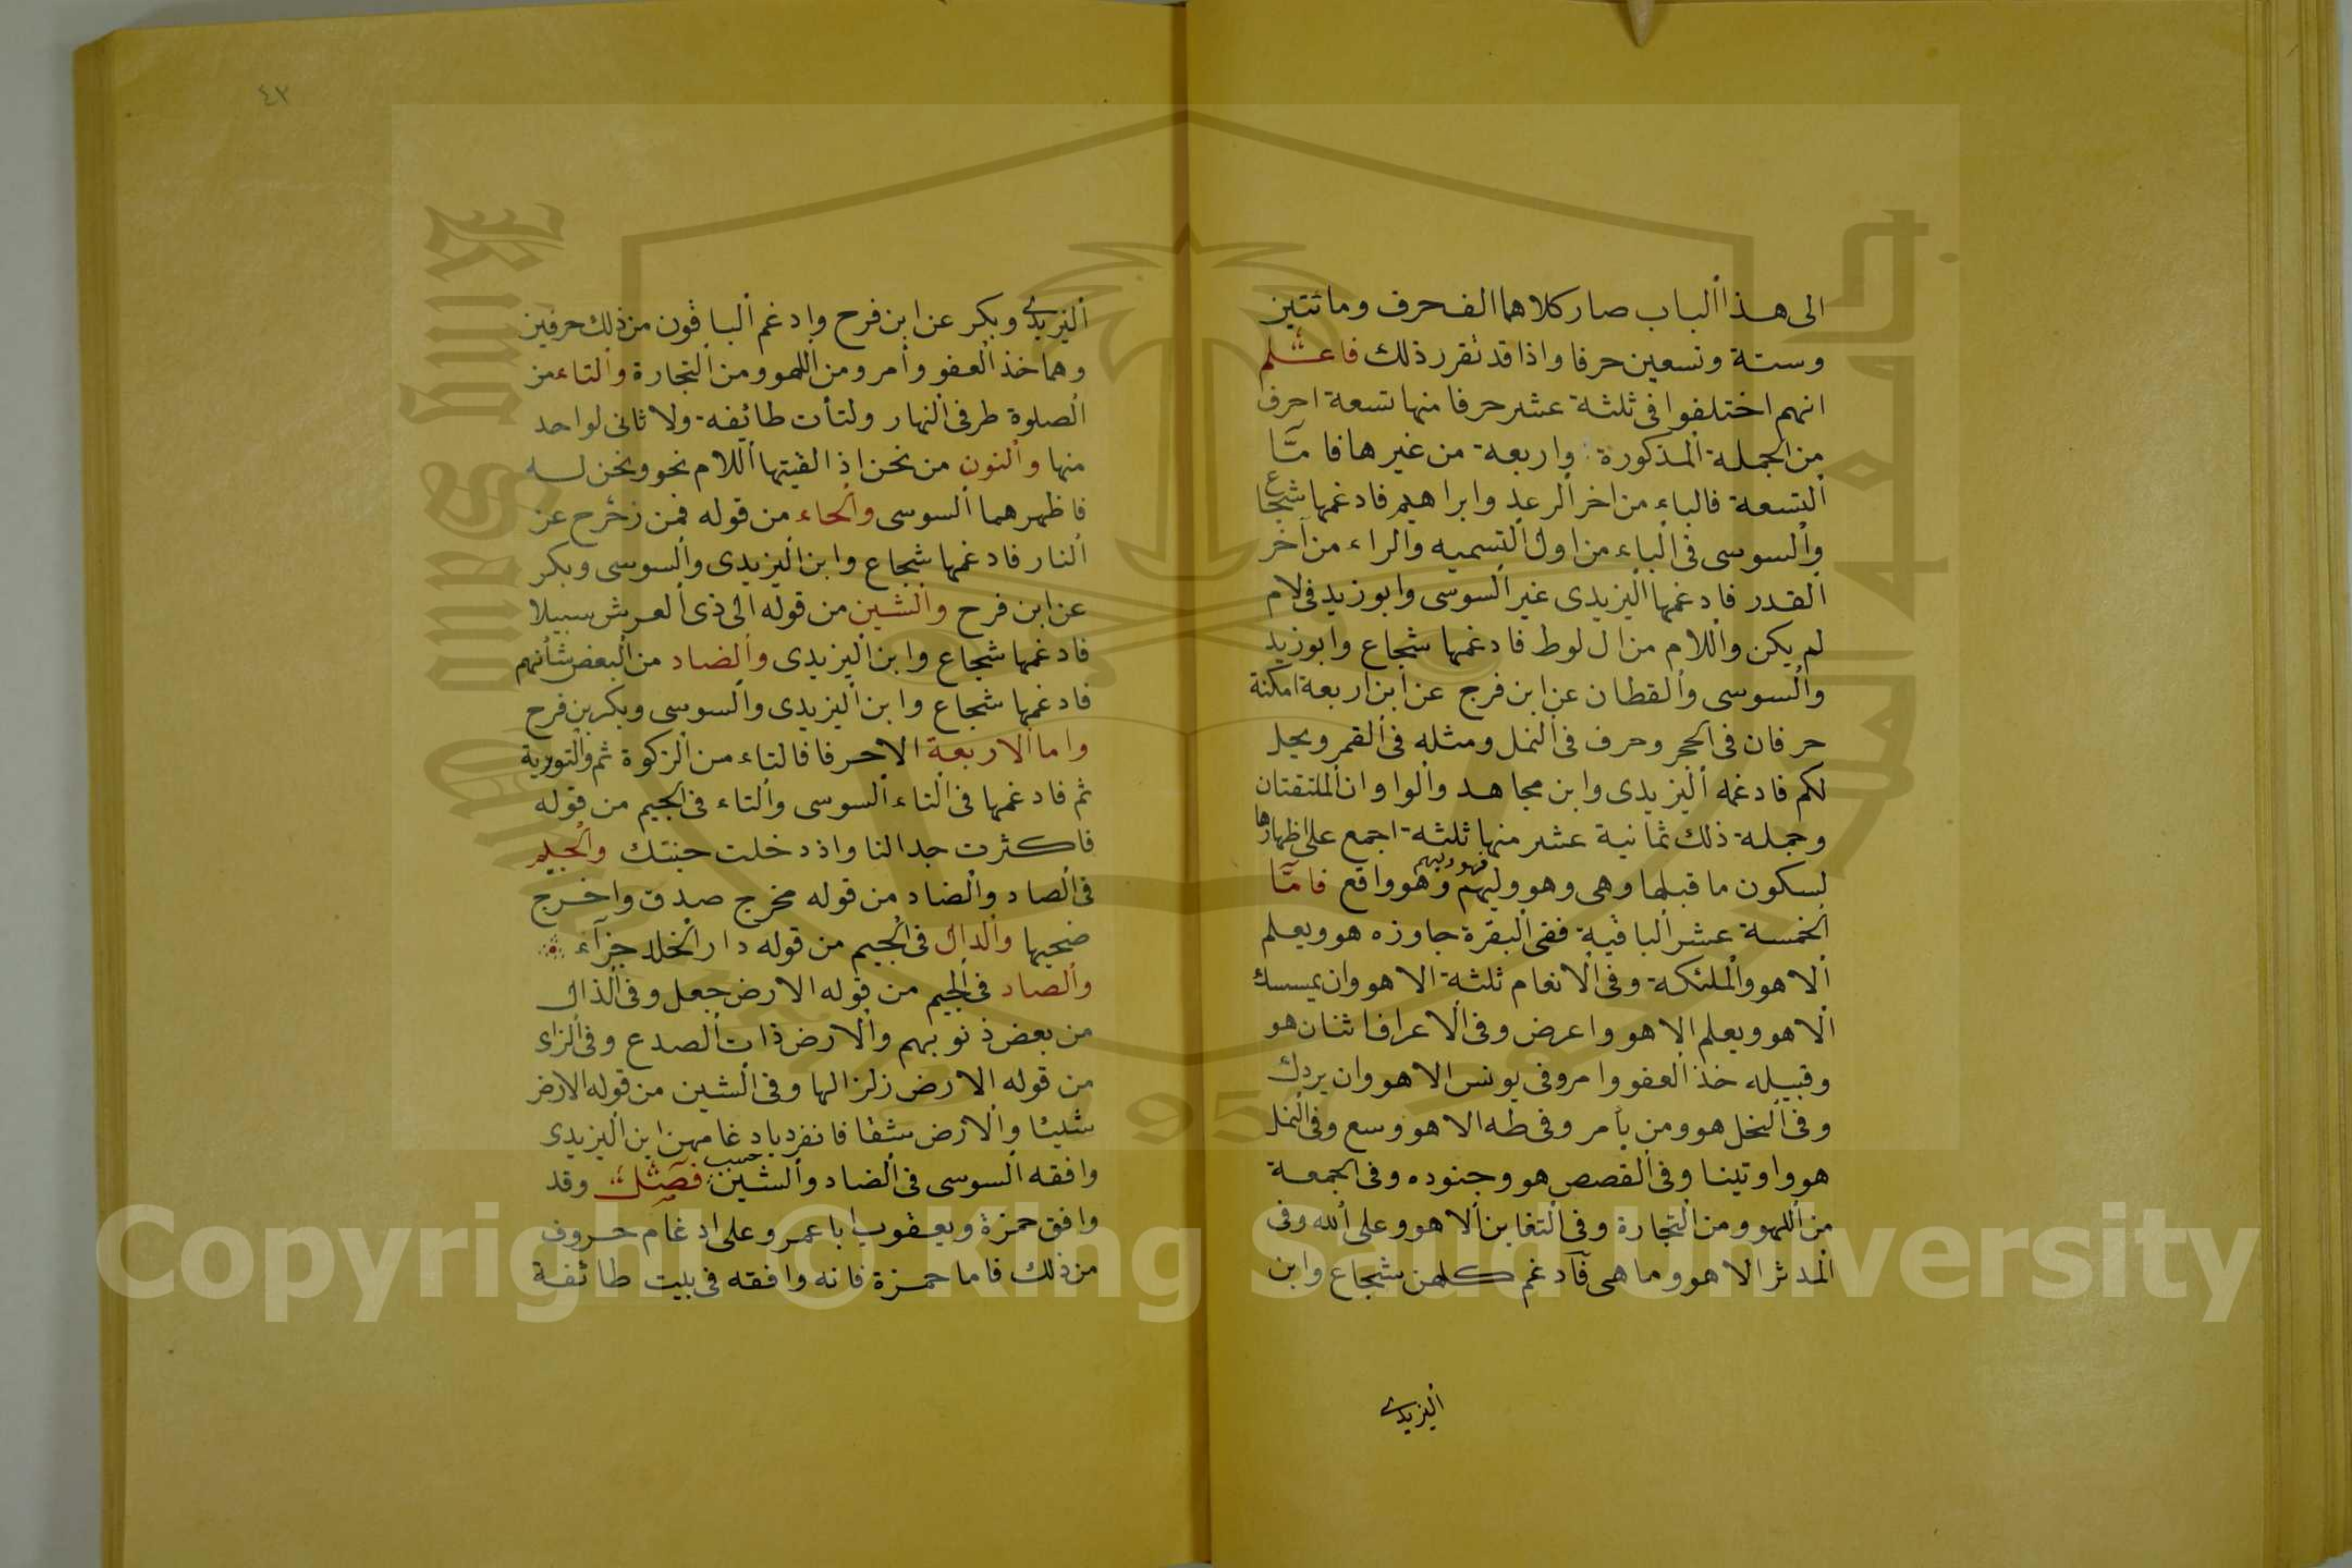 الى هذا الباب صار كلاهما الف حرف ومائتين
وستة وتسعين حرفا واذا قد تقرر ذلك فاعلم
انهم اختلفوا فى ثلثة عشر حرفا منها تسعة احرف
من الجملة المذكورة واربعة من غيرها فاما
التسعة فالباء من اخر الرعد وابراهيم فادغمها شجاع
والسوسى فى الباء من اول التسميه والراء من آخر
القدر فادغمها اليزيدى غير السوسى وابوزيد فى لام
لم يكن واللام من ال لوط فادغمها شجاع وابوزيد
والسوسى والقطان عن ابن فرج عن ابن اربعة امكنة
حرفان فى الحجر وحرف فى النمل ومثله فى القمر ويحل
لكم فادغمه اليزيدى وابن مجاهد والواوان الملتقتان
وجملة ذلك ثمانية عشر منها ثلثة اجمع على اظهارها
لسكون ما قبلها وهى وهو وليهم فهو وليهم وهو واقع فاما
الخمسة عشر الباقية ففى البقرة جاوزه هو ويعلم
الا هو والملئكة وفى الانعام ثلثة الا هو وان يمسسك
الا هو ويعلم الا هو واعرض وفى الاعراف اثنان هو
وقبيله خذ العفو وامر وفى يونس الا هو وان يردك
وفى النحل هو ومن يأمر وفى طه الا هو وسع وفى النمل
هو واوتينا وفى القصص هو وجنوده وفى الجمعة
من اللهو ومن التجارة وفى التغابن الا هو وعلى الله وفى
المدثر الا هو وما هى فادغم كلهن شجاع وابن
اليزيدى
٤٢
اليزيدى وبكر عن ابن فرح وادغم الباقون من ذلك حرفين
وهما خذ العفو وأمر ومن اللهو ومن التجارة والتاء من
الصلوة طرفى النهار ولتأت طائفة ولا ثانى لواحد
منها والنون من نحن اذ القيتها اللام نحو ونحن له
فاظهرهما السوسى والحاء من قوله فمن زحزح عن
النار فادغمها شجاع وابن اليزيدى والسوسى وبكر
عن ابن فرح والشين من قوله الى ذى العرش سبيلا
فادغمها شجاع وابن اليزيدى والضاد من البعض شأنهم
فادغمها شجاع وابن اليزيدى والسوسى وبكر بن فرح
واما الاربعة الاحرفا فالتاء من الزكوة ثم والتورية
ثم فادغمها فى الثاء السوسى والتاء فى الجيم من قوله
فاكثرت جدالنا واذ دخلت جنتك والجيم
فى الصاد والضاد من قوله مخرج صدق واخرج
ضحيها والدال فى الجيم من قوله دار الخلد جزآء
والضاد فى الجيم من قوله الارض جعل وفى الذال
من بعض ذنوبهم والارض ذات الصدع وفى الزاى
من قوله الارض زلزالها وفى الشين من قوله الارض
شيئا والارض شقا فانفرد بادغامهن ابن اليزيدى
وافقه السوسى فى الضاد والشين حسب فصل وقد
وافق حمزة ويعقوب ابا عمرو على ادغام حروف
من ذلك فاما حمزة فانه وافقه فى بيت طائفة
Copyright © King Saud University
King Saud University
1957